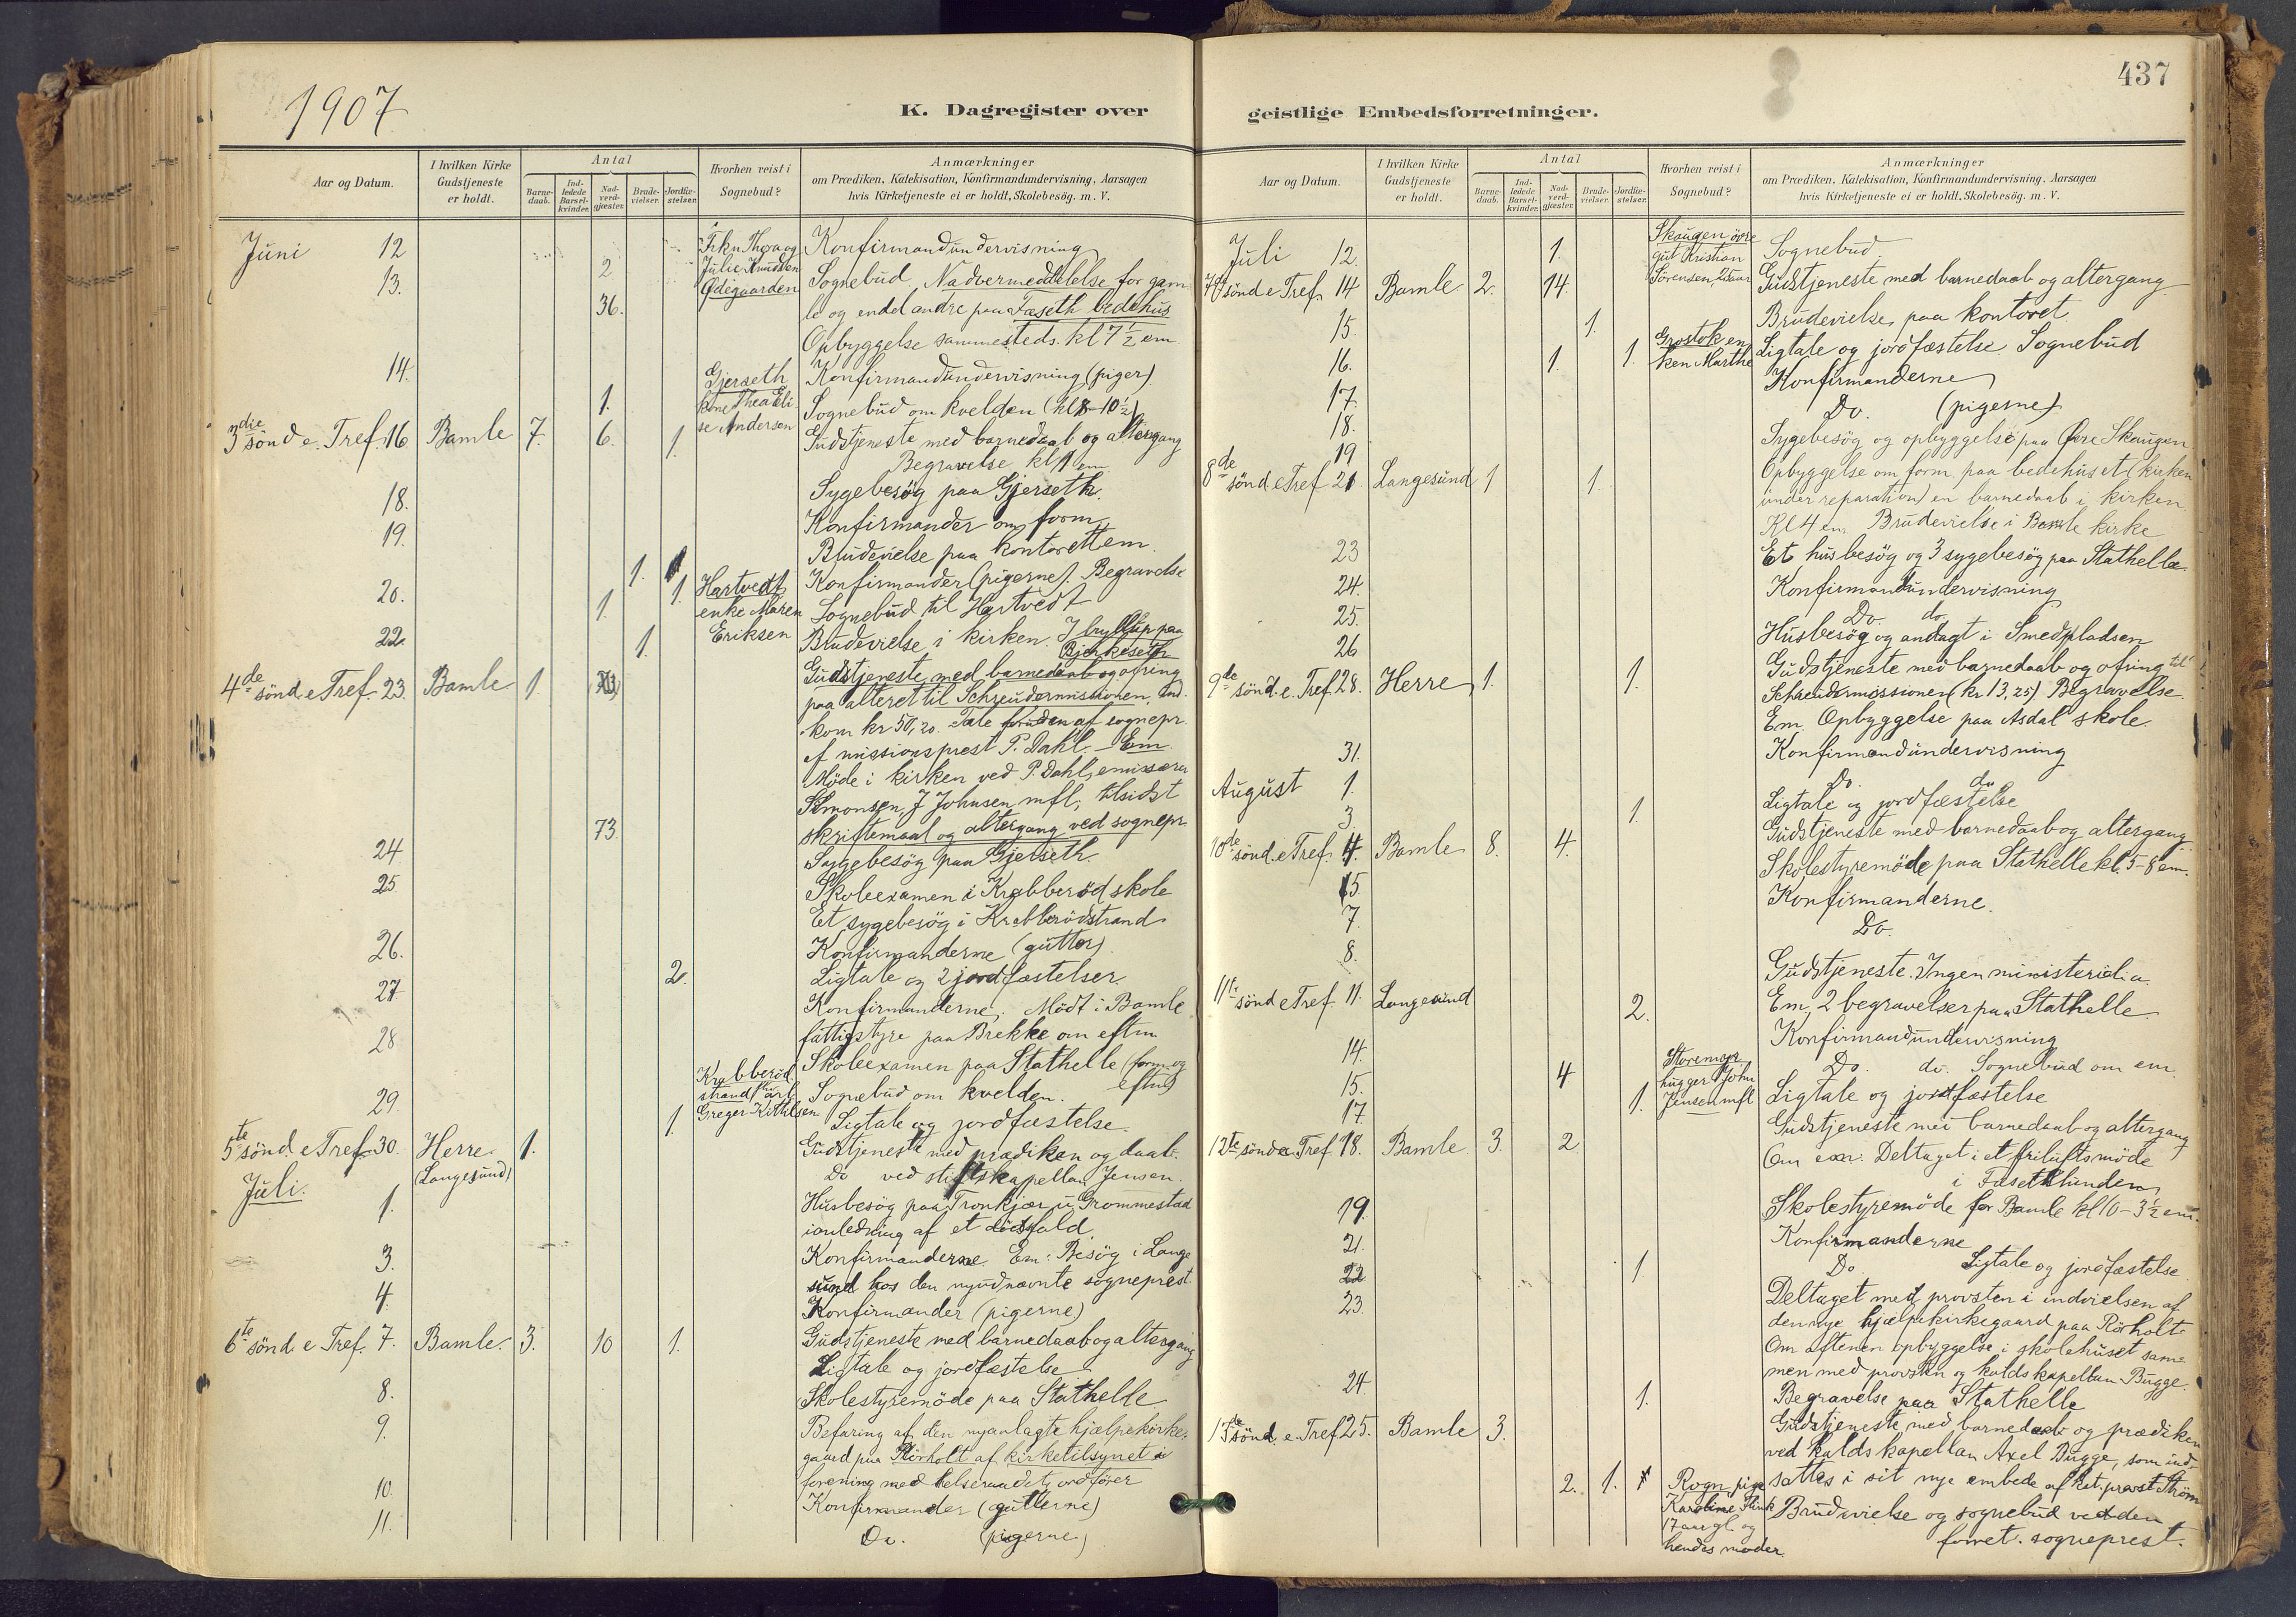 1907
K. Dagregister over
Aar og Datum.
I hvilken Kirke Gudstjeneste er holdt.
Antal
Barne-daab.
Ind-ledede Barsel-kvinder.
Nad-verd-gjæster.
Brude-vielser.
Jordfæ-stelser.
Hvorhen reist i Sognebud?
Anmærkninger
om Prædiken, Katekisation, Konfirmandundervisning, Aarsagen
hvis Kirketjeneste ei er holdt, Skolebesög. m. V.
Juni 12 Frkn Thora og Konfirmandundervisning
13. 2 Julie Knudsen Sognebud Nadvermeddelelse for gam
36. Ødegaarden le og endel andre paa Fæseth bedehus
Opbyggelse sammesteds. kl 7 1/2 em
14. Gjerseth Konfirmandundervisning (piger)
1. kone Thea Eli Sognebud om kvelden (kl 8-10 1/2)
se Andersen
3die sönd e. Tref. 16 Bamle 7. 6. 1. Gudstjeneste med barnedaab og altergang
Begravelse kl 1 em
18. Sygebesög paa Gjerseth.
19. Konfirmander om form
1. Brudevielse paa kontoret em.
20. 1. Hartvedt Konfirmander (pigerne). Begravelse
1. enke Maren Sognebud til Hartvedt
22. 1. Eriksen Brudevielse i kirken. I bryllup paa
Bjerkeseth
4de sönd e Tref. 23. Bamle 1. Gudstjeneste med barnedaab og ofring
paa alteret til Schreudermissionen. Ind
kom kr 50,20. Tale foruden af sognepr.
af missionsprest P. Dahl. – Em
Möde i kirken ved P. Dahl, emissær
Simonsen, J Johnsen mfl; tilsidst
73. skriftemaal og altergang ved sognepr.
24 Sygebesög paa Gjerseth
25 Skoleexamen i Krabberöd skole
Et sygebesög i Krabberödstrand
26. Konfirmanderne (gutter)
2. Ligtale og 2 jordfæstelser.
27 Konfirmanderne. Mödt i Bamle
fattigstyre paa Brekke om eftm
28 Skoleexamen paa Stathelle (form og
Krabberöd eftm)
strand Sognebud om kvelden.
29. 1. Greger Kittilsen Ligtale og jordfæstelse.
5te sönd. e Tref. 30. Herre 1. Gudstjeneste med prædiken og daab.
(Langesund) Do ved stiftskapellan Jensen.
Juli. 1. Husbesög paa Tronkjær u. Grommestad
ianledning af et dödsfald.
3. Konfirmanderne. Em: Besög i Lange
sund hos den nyudnævnte sogneprest.
4. Konfirmander (pigerne)
6te sönd e Tref. 7. Bamle. 3. 10 1. Gudstjeneste med barnedaab og altergang
Ligtale og jordfæstelse
8. Skolestyremöde paa Stathelle
9. Befaring af den nyanlagte hjælpekirke-
gaard paa Rörholt af kirketilsynet i
forening med helseraadets ordförer
10. Konfirmander (gutterne)
11. Do. (pigerne)
437
geistlige Embedsforretninger.
Aar og Datum.
I hvilken Kirke Gudstjeneste er holdt.
Antal
Barne-daab.
Ind-ledede Barsel-kvinder.
Nad-verd-gjæster.
Brude-vielser.
Jordfæ-stelser.
Hvorhen reist i Sognebud?
Anmærkninger
om Prædiken, Katekisation, Konfirmandundervisning, Aarsagen
hvis Kirketjeneste ei er holdt, Skolebesög. m. V.
Juli 12. 1. Skaugen övre Sognebud
gut Kristian
Sörensen
7de sönd e Tref 14 Bamle 2. 14. Gudstjeneste med barnedaab og altergang
15. 1. Brudevielse paa kontoret.
16. 1. 1. Grostok en Ligtale og jordfæstelse. Sognebud
ken Marthe
17. Konfirmanderne
18. Do. (pigerne)
19 Sygebesög og opbyggelse paa Övre Skaugen
8de sönd e Tref 21 Langesund 1 1. Opbyggelse om form. paa bedehuset (kirken
under reparation) en barnedaab i kirken.
Kl 4 em Brudevielse i Bamle kirke
23 Et husbesög og 3 sygebesög paa Stathelle
24. Konfirmandundervisning
25. Do. do.
26 Husbesög og andagt i Smedpladsen
9de sönd. e. Tref. 28. Herre 1. 1. Gudstjeneste med barnedaab og ofring til
Schreudermissionen (kr 13,25) Begravelse.
Em Opbyggelse paa Asdal skole.
31. Konfirmandundervisning
August 1. Do do
3. 1. Ligtale og jordfæstelse
10de sönd. e Tref. 4. Bamle 8. 4. Gudstjeneste med barnedaab og altergang
5. Skolestyremöde paa Stathelle kl. 5-8 em.
7. Konfirmanderne.
8. Do.
11te sönd e Tref. 11. Langesund Gudstjeneste. Ingen ministerialia.
2. Em, 2 begravelser paa Stathelle.
14. Konfirmandundervisning
15. 4 hugger John Do. do. Sognebud om em
17. 1. Jensen mfl Ligtale og jordfæstelse
12te sönd e Tref. 18. Bamle 3. 2. Gudstjeneste med barnedaab og altergang
Om em. Deltaget i et friluftsmöde
i Fæsethlunden
19. Skolestyremöde for Bamle kl 10 - 3 1/2 em.
21. Konfirmanderne
22 1. Do Ligtale og jordfæstelse
23. Deltaget med provsten i indvielsen af
den nye hjælpekirkegaard paa Rörholt
Om aftenen opbyggelse i skolehuset sam
men med provsten og kaldskapellan Bugge.
24. 1. Begravelse paa Stathelle
13de sönd e. Tref 25. Bamle 3. Gudstjeneste med barnedaab og prædiken
ved kaldskapellan Axel Bugge, som ind-
sattes i sit nye embede af kst. provst Ström
2. 1. Rogn, pige
Karoline Flink Brudevielse og sognebud ved den
17 aar gl. og forret. sogneprest.
hendes moder.